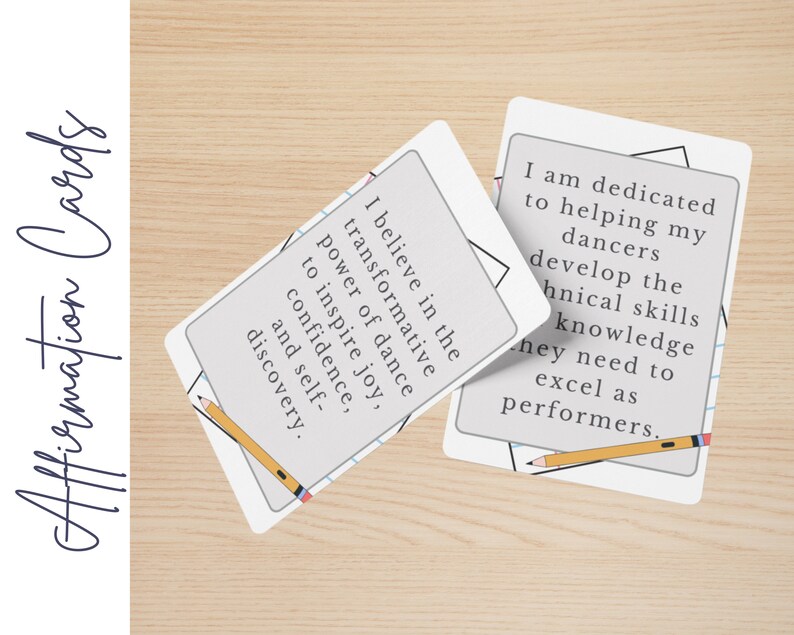 Affirmation Cards
I believe in the
transformative
power of dance
to inspire joy,
confidence,
and self-
discovery.
I am dedicated
to helping my
dancers
develop the
skills
knowledge
need to
excel as
performers.